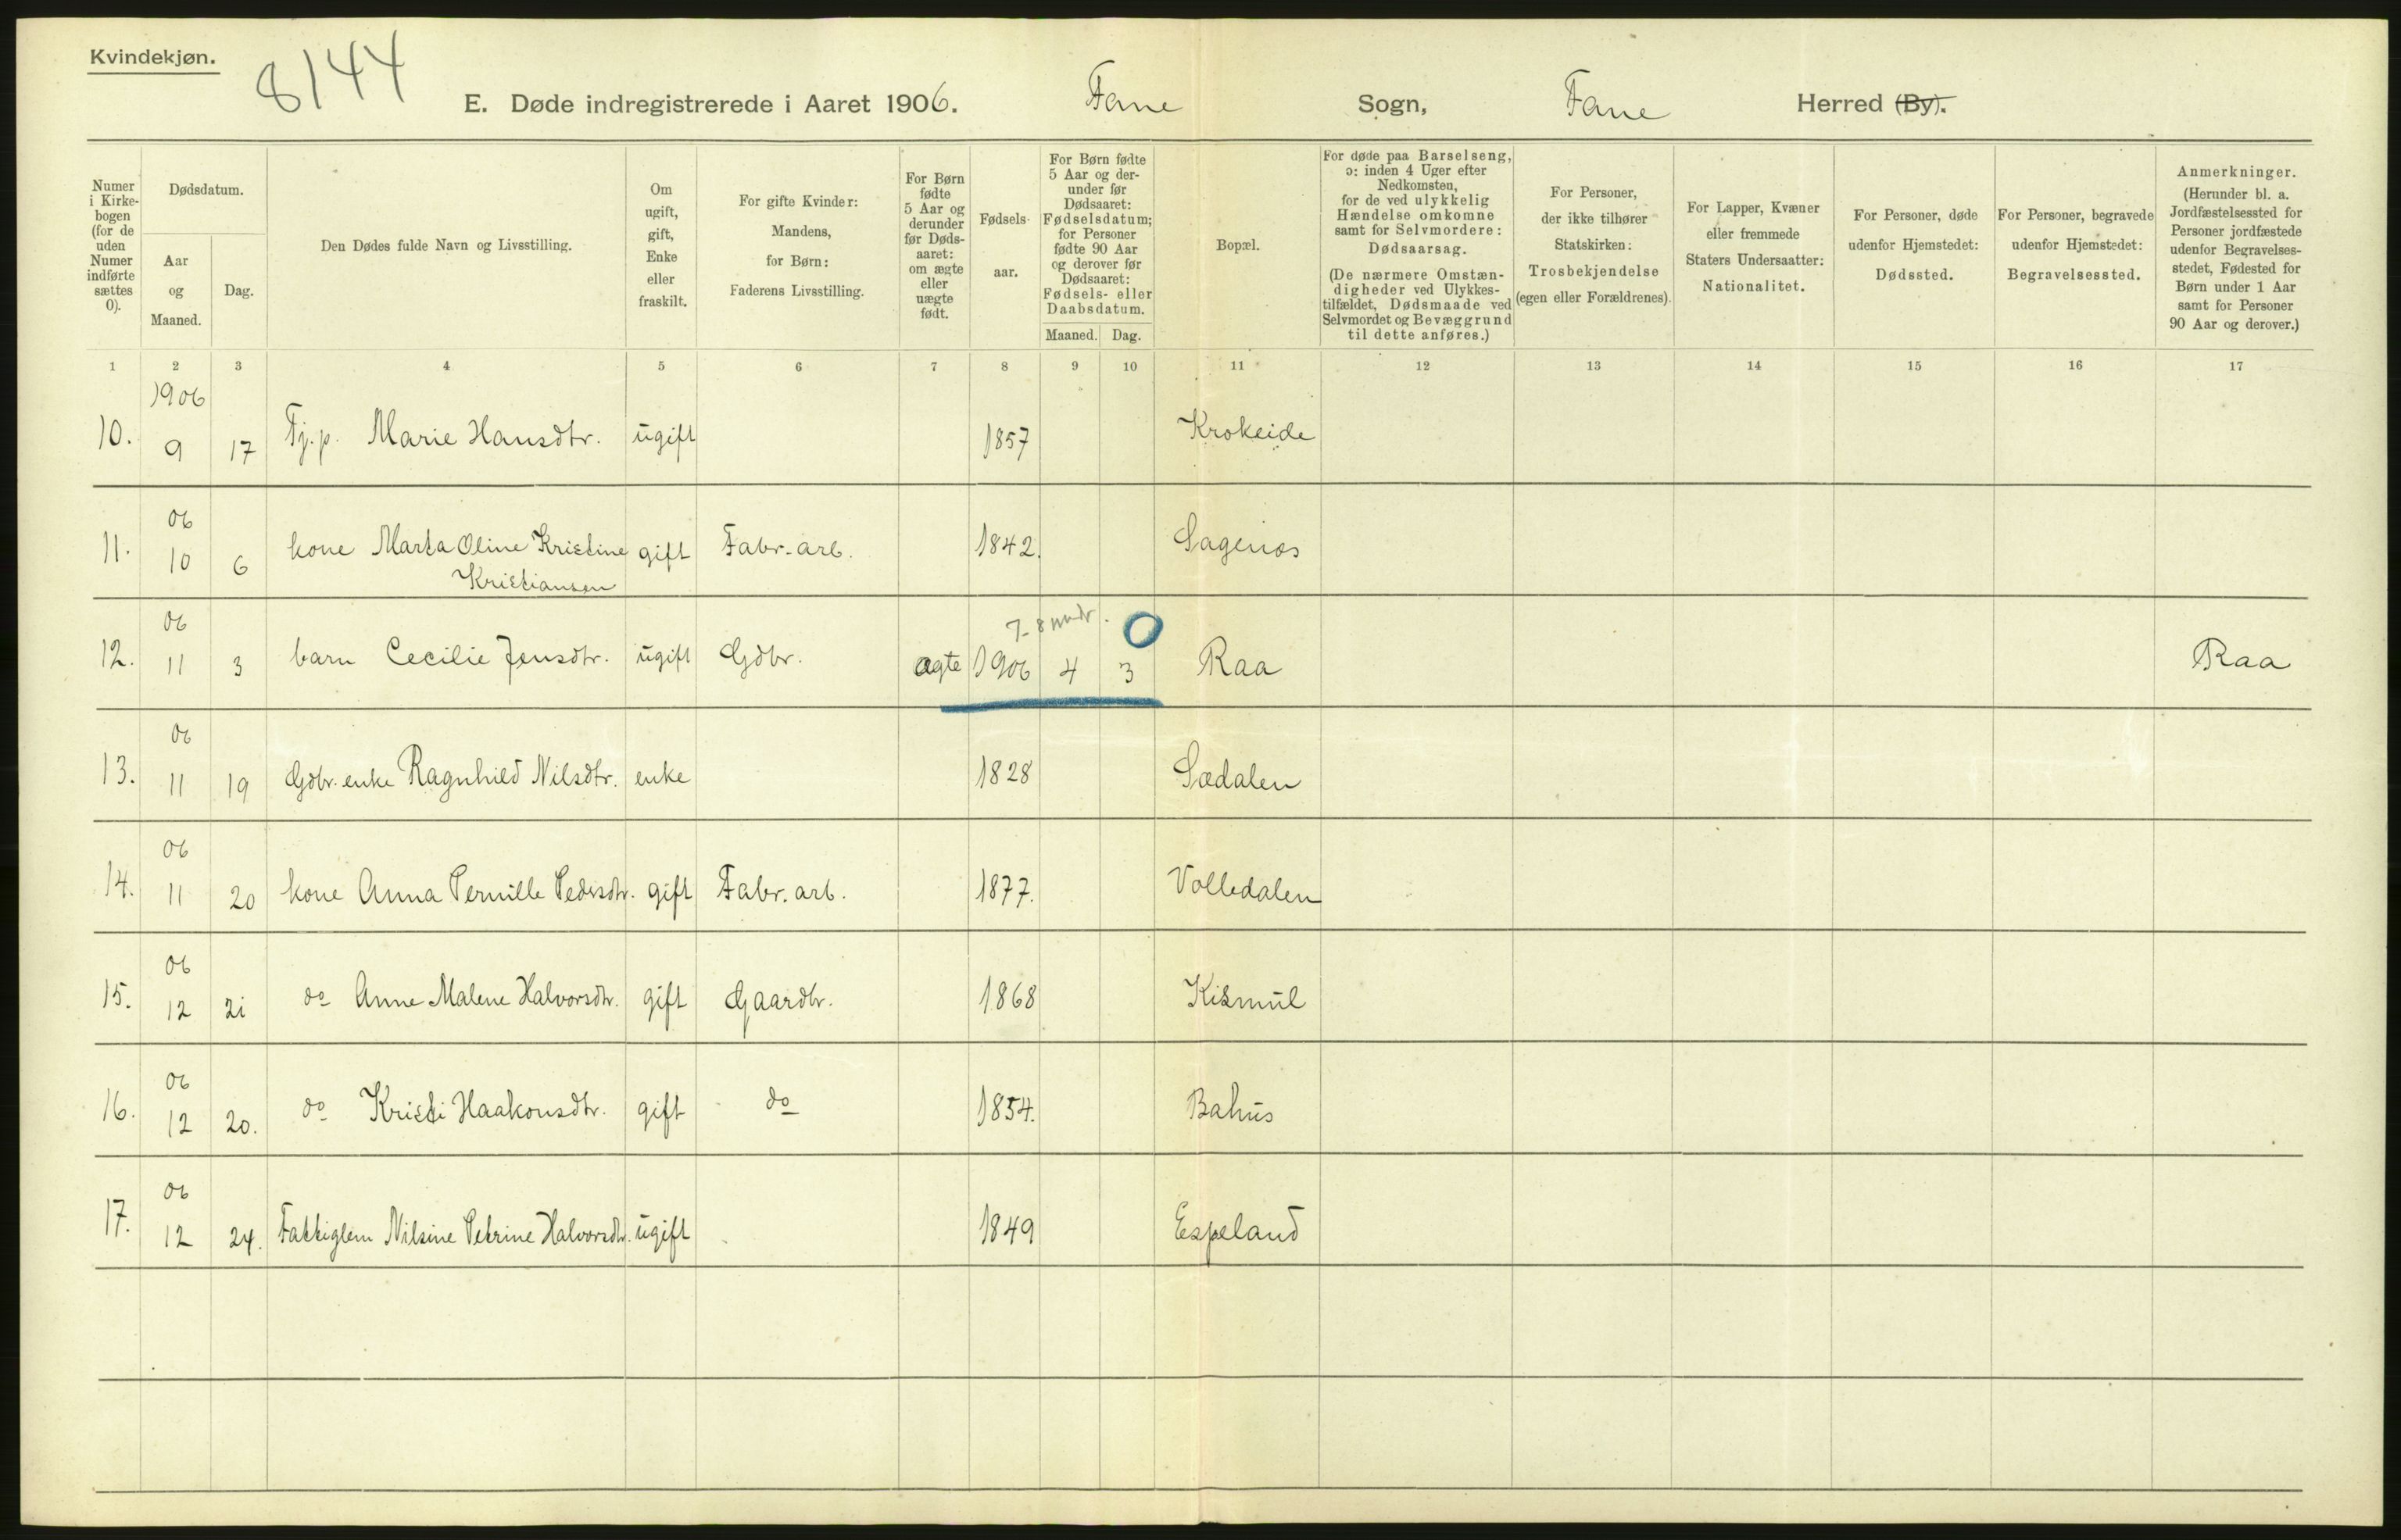 Kvindekjøn.
8144
E. Døde indregistrerede i Aaret 1906. Fane Sogn, Fane Herred (By).
Numer i Kirkebogen (for de uden Numer indførte sættes 0).
Dødsdatum.
Aar og Maaned.
Dag.
Den Dødes fulde Navn og Livsstilling.
Om ugift, gift, Enke eller fraskilt.
For gifte Kvinder: Mandens, for Børn: Faderens Livsstilling.
For Børn fødte 5 Aar og derunder før Dødsaaret: om ægte eller uægte født.
Fødselsaar.
For Børn fødte 5 Aar og derunder før Dødsaaret: Fødselsdatum; for Personer fødte 90 Aar og derover før Dødsaaret: Fødsels- eller Daabsdatum.
Maaned. Dag.
Bopæl.
For døde paa Barselseng, ɔ: inden 4 Uger efter Nedkomsten, for de ved ulykkelig Hændelse omkomne samt for Selvmordere: Dødsaarsag.
(De nærmere Omstændigheder ved Ulykkestilfældet, Dødsmaade ved Selvmordet og Bevæggrund til dette anføres.)
For Personer, der ikke tilhører Statskirken: Trosbekjendelse (egen eller Forældrenes).
For Lapper, Kvæner eller fremmede Staters Undersaatter: Nationalitet.
For Personer, døde udenfor Hjemstedet: Dødssted.
For Personer, begravede udenfor Hjemstedet: Begravelsessted.
Anmerkninger.
(Herunder bl. a. Jordfæstelsessted for Personer jordfæstede udenfor Begravelsesstedet, Fødested for Børn under 1 Aar samt for Personer 90 Aar og derover.)
1 2 3 4 5 6 7 8 9 10 11 12 13 14 15 16 17
1906
10. 9 17 Fj.p. Marie Hansdtr. ugift 1857 Krokeide
06
11. 10 6 kone Marta Oline Kristine gift Fabr.-arb. 1842. Sagenos
Kristiansen
06 7-8 mndr. 0
12. 11 3 barn Cecilie Jensdtr. ugift Gdbr. ægte 1906 4 3 Raa Raa
06
13. 11 19 Gdbr. enke Ragnhild Nilsdtr. enke 1828 Sædalen
06
14. 11 20 kone Anna Pernille Pedersdtr. gift Fabr. arb. 1877. Volledalen
06
15. 12 21 do Anne Malene Halvorsdtr. gift Gaardbr. 1868 Kismul
06
16. 12 20. do Kristi Haakonsdtr. gift do 1854. Bahus
06
17. 12 24. Fattiglem Nilsine Petrine Halvorsdtr. ugift 1849 Espeland